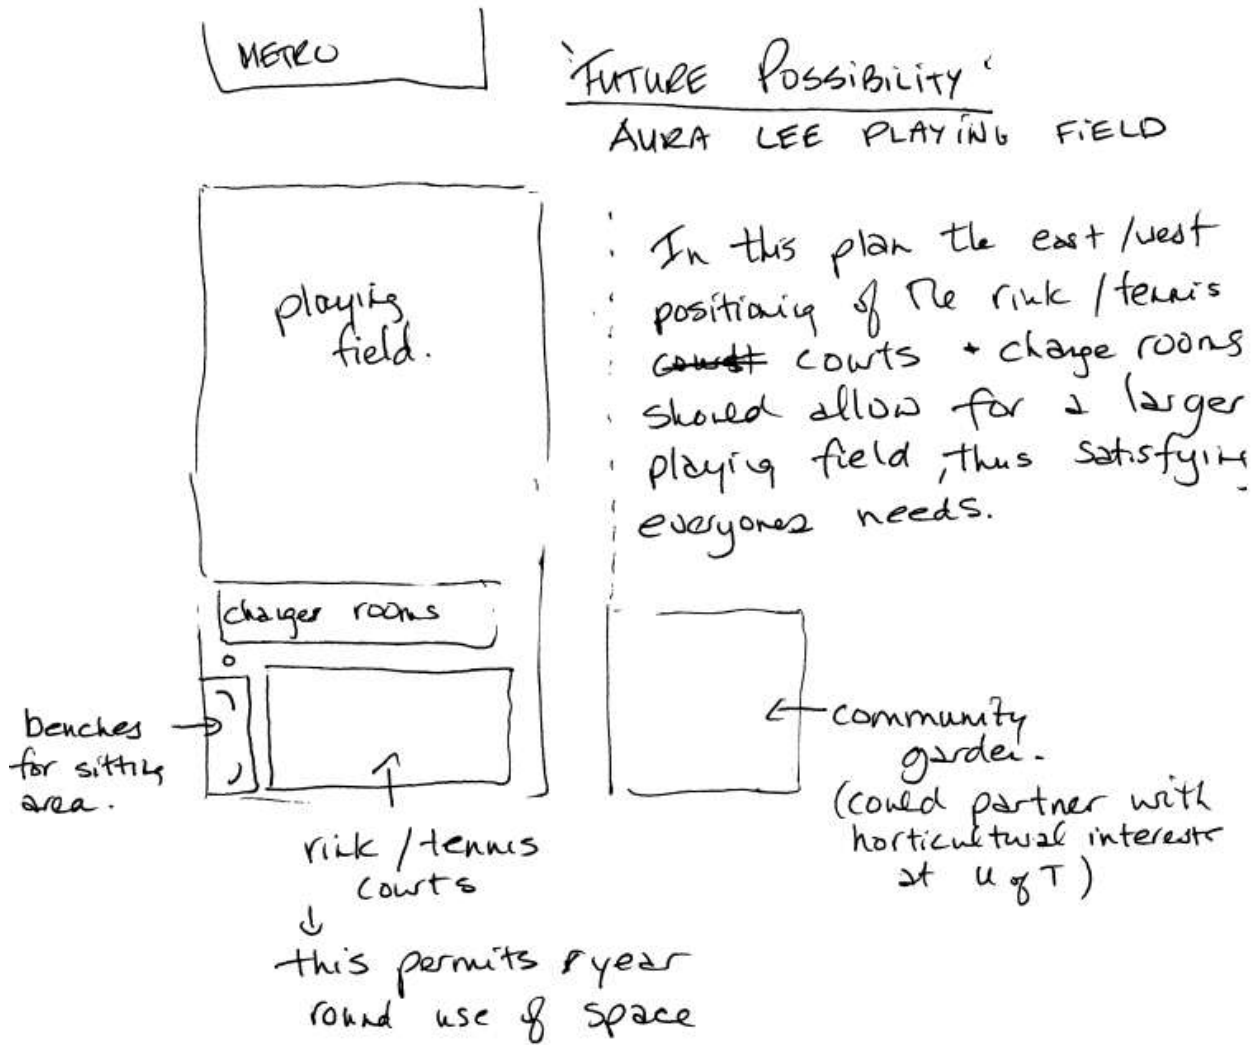 METRO
'FUTURE POSSIBILITY'
AURA LEE PLAYING FIELD
playing
field.
In this plan the east/west
positioning of the rink/tennis
courts + change rooms
should allow for a larger
playing field, thus satisfying
everyones needs.
changer rooms
benches
for sitting
area.
rink/tennis
courts
↓
this permits year
round use of space
community
garden.
(could partner with
horticultural interests
at U of T)